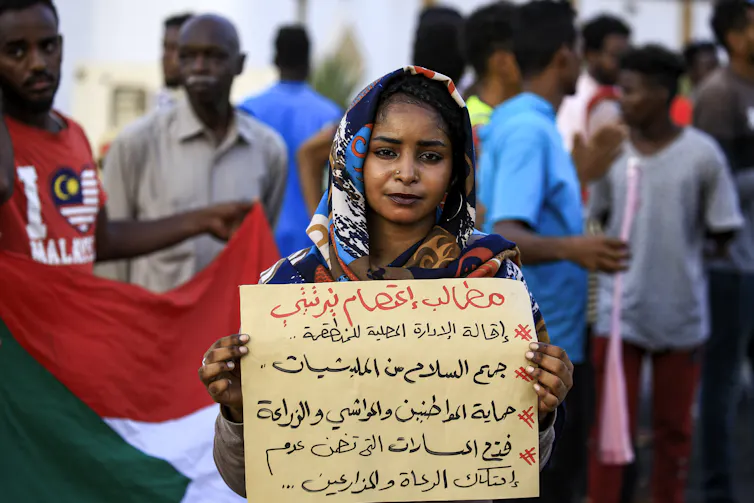 مطالب إعتصام نيرتتي
# إقالة الإدارة المحلية للمنطقة ..
# جمع السلاح من المليشيات ..
# حماية المواطنين والمواشي والزراعة
# فتح المسارات التي تضمن عدم
إحتكاك الرعاة والمزارعين ...
I